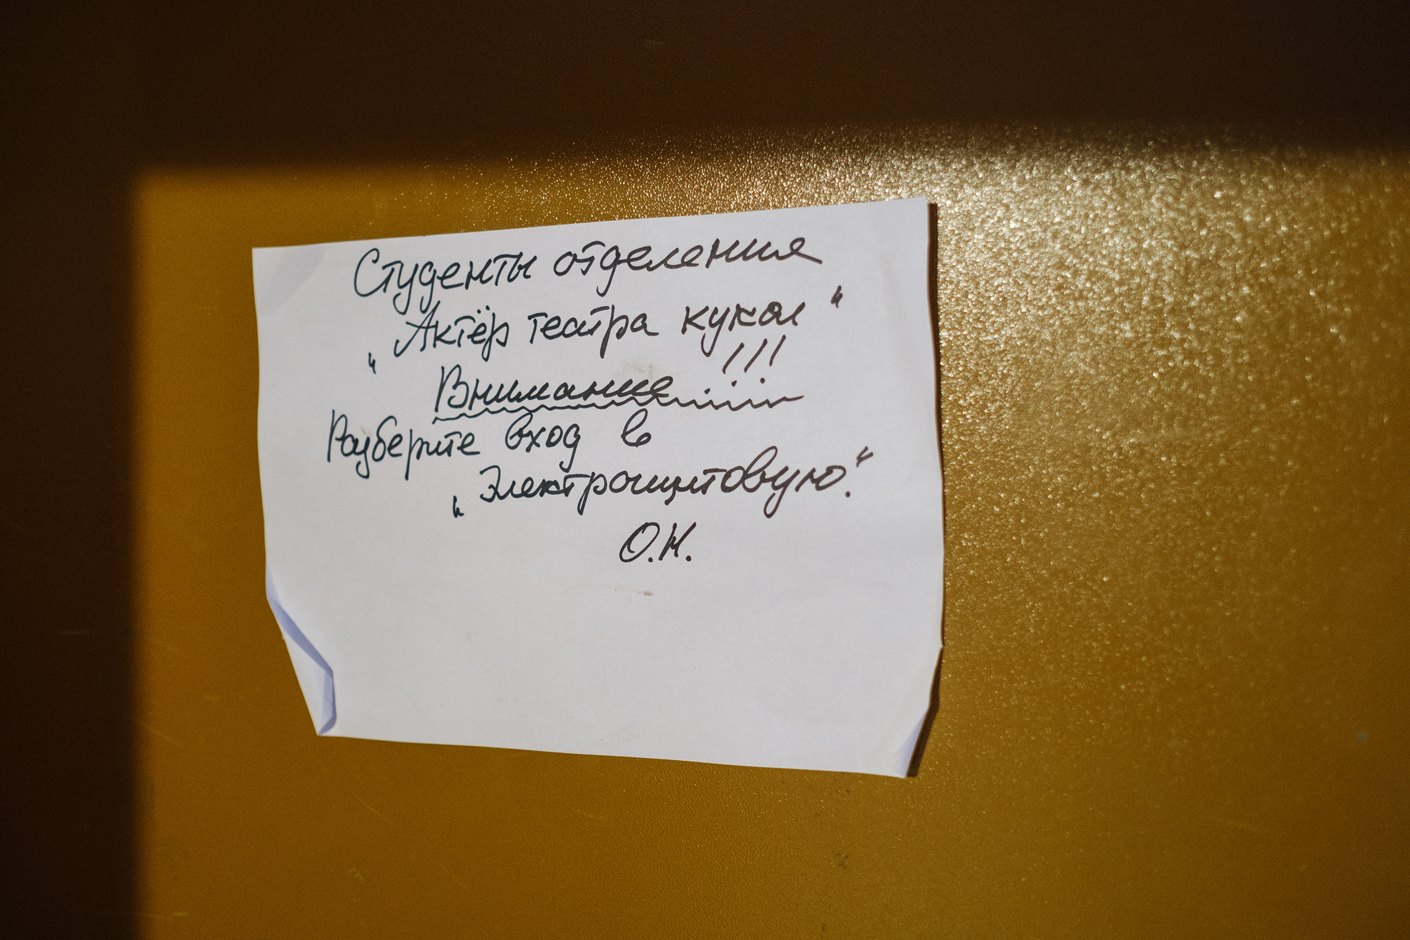 Студенты отделения
„Актёр театра кукол“
Внимание!!!
Разберите вход в
„Электрощитовую“.
О.Н.